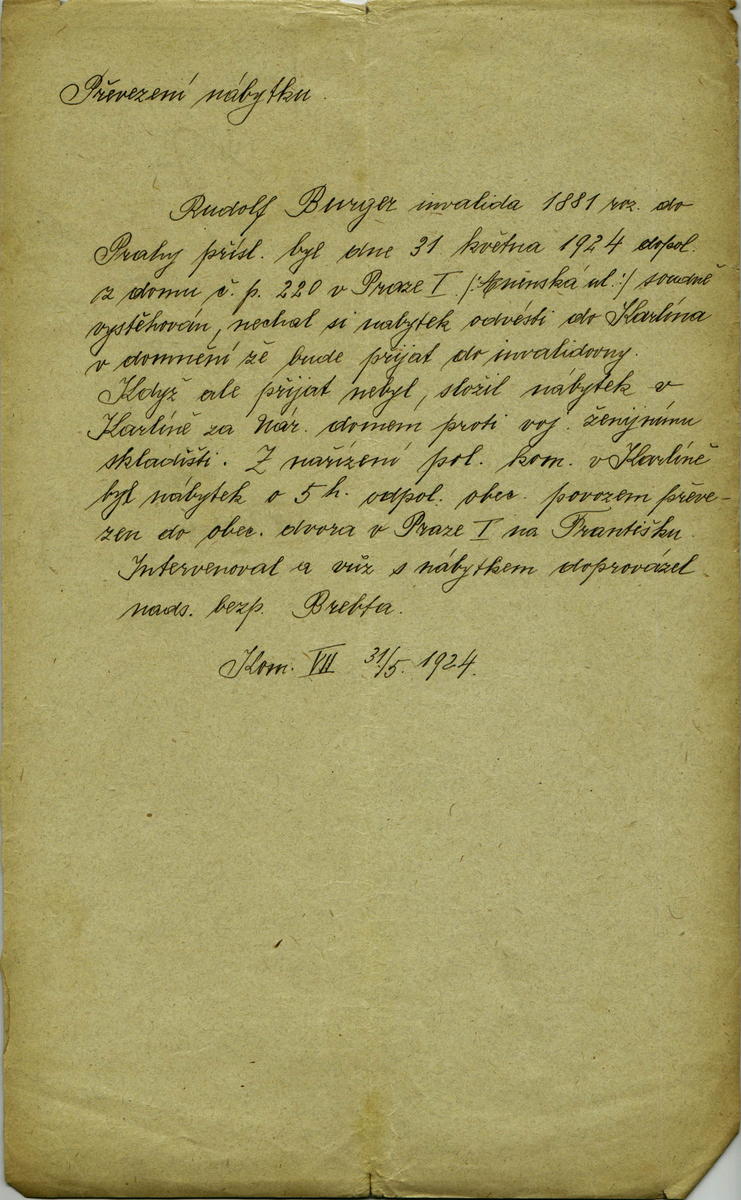 Převezení nábytku.
Rudolf Burger invalida 1881 roz. do
Prahy přísl. byl dne 31 května 1924 dopol.
z domu č. p. 220 v Praze I /:Aninská ul:/ soudně
vystěhován, nechal si nabytek odvésti do Karlína
v domnění že bude přijat do invalidovny.
Když ale přijat nebyl, složil nábytek v
Karlíně za Nár. domem proti voj. ženijnímu
skladišti. Z nařízení pol. kom. v Karlíně
byl nábytek o 5 h. odpol. obec. povozem převe-
zen do obec. dvora v Praze I na Františku.
Intervenoval a vůz s nábytkem doprovázel
nads. bezp. Brebta.
Kom. VII 31/5. 1924.